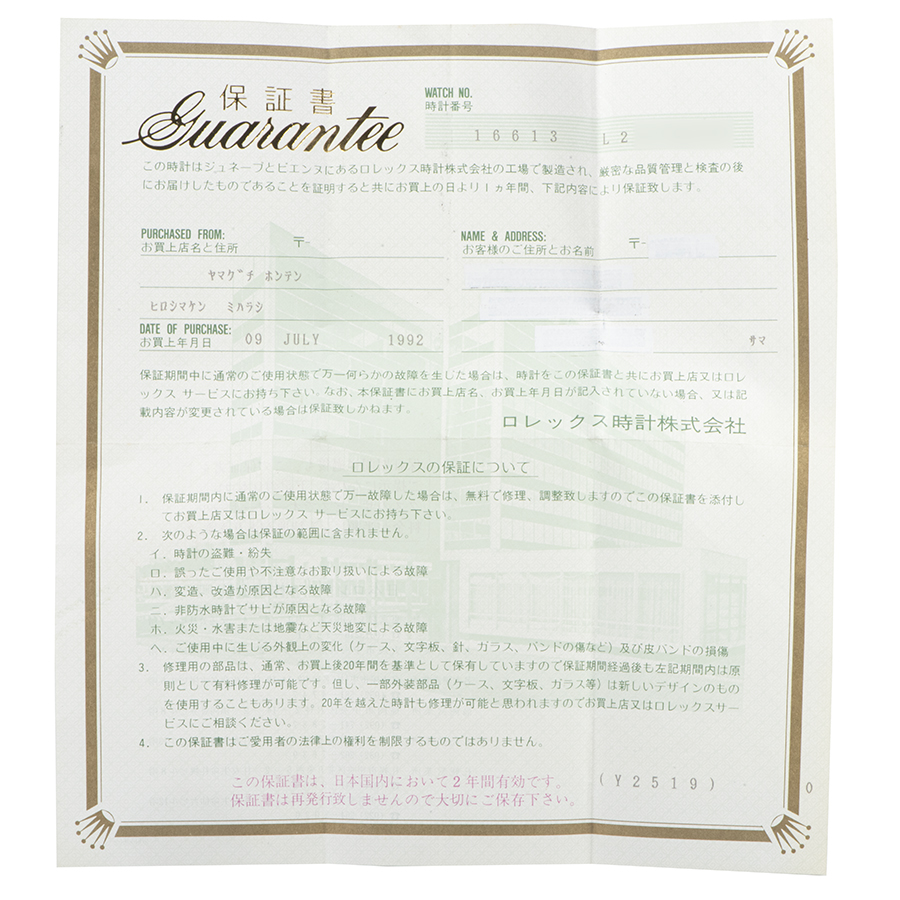 保証書
Guarantee
WATCH NO.
時計番号
16613 L2
この時計はジュネーブとビエンヌにあるロレックス時計株式会社の工場で製造され、厳密な品質管理と検査の後
にお届けしたものであることを証明すると共にお買上の日より1ヵ年間、下記内容により保証致します。
PURCHASED FROM:
お買上店名と住所 〒-
ヤマグチ ホンテン
ヒロシマケン ミハラシ
DATE OF PURCHASE:
お買上年月日 09 JULY 1992
NAME & ADDRESS:
お客様のご住所とお名前 〒-
サマ
保証期間中に通常のご使用状態で万一何らかの故障を生じた場合は、時計をこの保証書と共にお買上店又はロレ
ックス サービスにお持ち下さい。なお、本保証書にお買上店名、お買上年月日が記入されていない場合、又は記
載内容が変更されている場合は保証致しかねます。
ロレックス時計株式会社
ロレックスの保証について
1. 保証期間内に通常のご使用状態で万一故障した場合は、無料で修理、調整致しますのでこの保証書を添付し
てお買上店又はロレックス サービスにお持ち下さい。
2. 次のような場合は保証の範囲に含まれません。
イ. 時計の盗難・紛失
ロ. 誤ったご使用や不注意なお取り扱いによる故障
ハ. 変造、改造が原因となる故障
ニ. 非防水時計でサビが原因となる故障
ホ. 火災・水害または地震など天災地変による故障
ヘ. ご使用中に生じる外観上の変化（ケース、文字板、針、ガラス、バンドの傷など）及び皮バンドの損傷
3. 修理用の部品は、通常、お買上後20年間を基準として保有していますので保証期間経過後も左記期間内は原
則として有料修理が可能です。但し、一部外装部品（ケース、文字板、ガラス等）は新しいデザインのもの
を使用することもあります。20年を越えた時計も修理が可能と思われますのでお買上店又はロレックスサー
ビスにご相談ください。
4. この保証書はご愛用者の法律上の権利を制限するものではありません。
この保証書は、日本国内において2年間有効です。
保証書は再発行致しませんので大切にご保存下さい。
(Y2519)
0